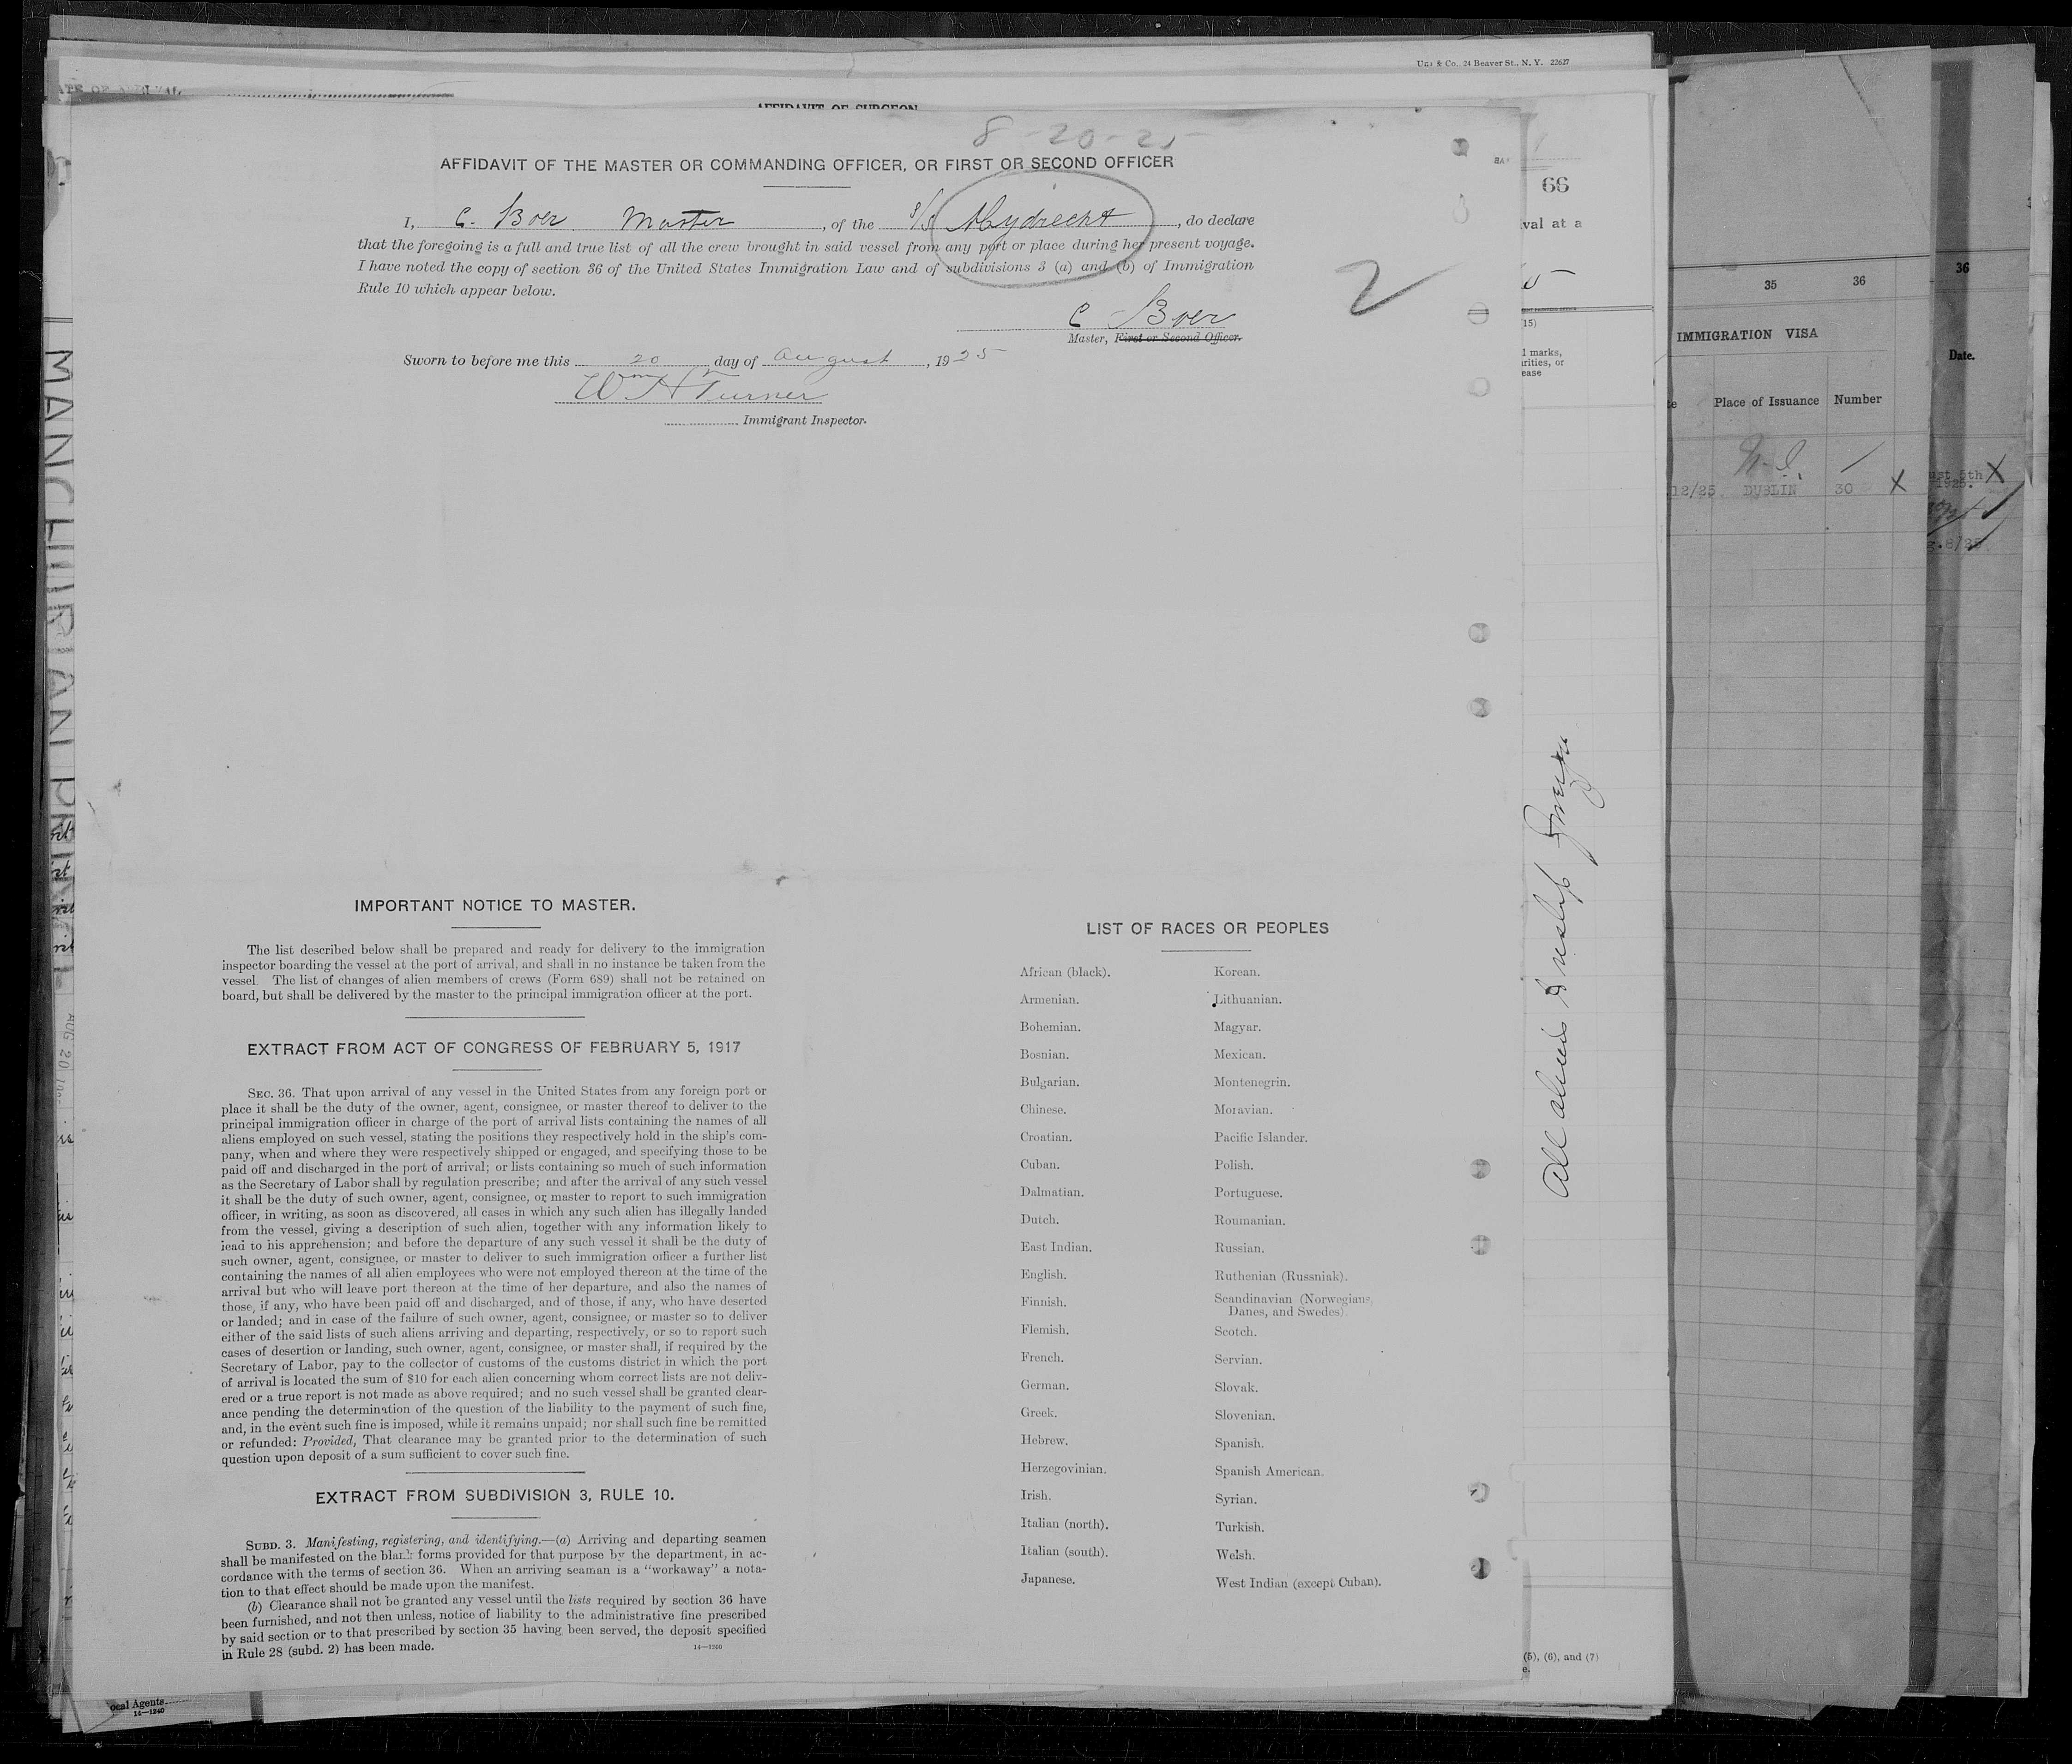 Co., 24 Beaver St., N. Y. 22627
AFFIDAVIT OF SURGEON
8-20-25
AFFIDAVIT OF THE MASTER OR COMMANDING OFFICER, OR FIRST OR SECOND OFFICER
I, C. Boer Master, of the S/S Mydrecht, do declare
that the foregoing is a full and true list of all the crew brought in said vessel from any port or place during her present voyage.
I have noted the copy of section 36 of the United States Immigration Law and of subdivisions 3 (a) and (b) of Immigration
Rule 10 which appear below.
2
C Boer
Master, First or Second Officer.
Sworn to before me this 20 day of August, 1925
Wm H Turner
Immigrant Inspector.
IMPORTANT NOTICE TO MASTER.
The list described below shall be prepared and ready for delivery to the immigration
inspector boarding the vessel at the port of arrival, and shall in no instance be taken from the
vessel. The list of changes of alien members of crews (Form 689) shall not be retained on
board, but shall be delivered by the master to the principal immigration officer at the port.
EXTRACT FROM ACT OF CONGRESS OF FEBRUARY 5, 1917
SEC. 36. That upon arrival of any vessel in the United States from any foreign port or
place it shall be the duty of the owner, agent, consignee, or master thereof to deliver to the
principal immigration officer in charge of the port of arrival lists containing the names of all
aliens employed on such vessel, stating the positions they respectively hold in the ship's com-
pany, when and where they were respectively shipped or engaged, and specifying those to be
paid off and discharged in the port of arrival; or lists containing so much of such information
as the Secretary of Labor shall by regulation prescribe; and after the arrival of any such vessel
it shall be the duty of such owner, agent, consignee, or master to report to such immigration
officer, in writing, as soon as discovered, all cases in which any such alien has illegally landed
from the vessel, giving a description of such alien, together with any information likely to
lead to his apprehension; and before the departure of any such vessel it shall be the duty of
such owner, agent, consignee, or master to deliver to such immigration officer a further list
containing the names of all alien employees who were not employed thereon at the time of the
arrival but who will leave port thereon at the time of her departure, and also the names of
those, if any, who have been paid off and discharged, and of those, if any, who have deserted
or landed; and in case of the failure of such owner, agent, consignee, or master so to deliver
either of the said lists of such aliens arriving and departing, respectively, or so to report such
cases of desertion or landing, such owner, agent, consignee, or master shall, if required by the
Secretary of Labor, pay to the collector of customs of the customs district in which the port
of arrival is located the sum of $10 for each alien concerning whom correct lists are not deliv-
ered or a true report is not made as above required; and no such vessel shall be granted clear-
ance pending the determination of the question of the liability to the payment of such fine,
and, in the event such fine is imposed, while it remains unpaid; nor shall such fine be remitted
or refunded: Provided, That clearance may be granted prior to the determination of such
question upon deposit of a sum sufficient to cover such fine.
EXTRACT FROM SUBDIVISION 3, RULE 10.
SUBD. 3. Manifesting, registering, and identifying.—(a) Arriving and departing seamen
shall be manifested on the blank forms provided for that purpose by the department, in ac-
cordance with the terms of section 36. When an arriving seaman is a "workaway" a nota-
tion to that effect should be made upon the manifest.
(b) Clearance shall not be granted any vessel until the lists required by section 36 have
been furnished, and not then unless, notice of liability to the administrative fine prescribed
by said section or to that prescribed by section 35 having been served, the deposit specified
in Rule 28 (subd. 2) has been made.
14—1240
LIST OF RACES OR PEOPLES
African (black).
Armenian.
Bohemian.
Bosnian.
Bulgarian.
Chinese.
Croatian.
Cuban.
Dalmatian.
Dutch.
East Indian.
English.
Finnish.
Flemish.
French.
German.
Greek.
Hebrew.
Herzegovinian.
Irish.
Italian (north).
Italian (south).
Japanese.
Korean.
Lithuanian.
Magyar.
Mexican.
Montenegrin.
Moravian.
Pacific Islander.
Polish.
Portuguese.
Roumanian.
Russian.
Ruthenian (Russniak).
Scandinavian (Norwegians,
Danes, and Swedes).
Scotch.
Servian.
Slovak.
Slovenian.
Spanish.
Spanish American.
Syrian.
Turkish.
Welsh.
West Indian (except Cuban).
66
val at a
15)
marks,
rities, or
ease
(5), (6), and (7)
35 36
IMMIGRATION VISA
Place of Issuance Number
12/25 DUBLIN 30 X
36
Date.
ust 5th X
1925.
8/25
AUG 20
ocal Agents
14—1240